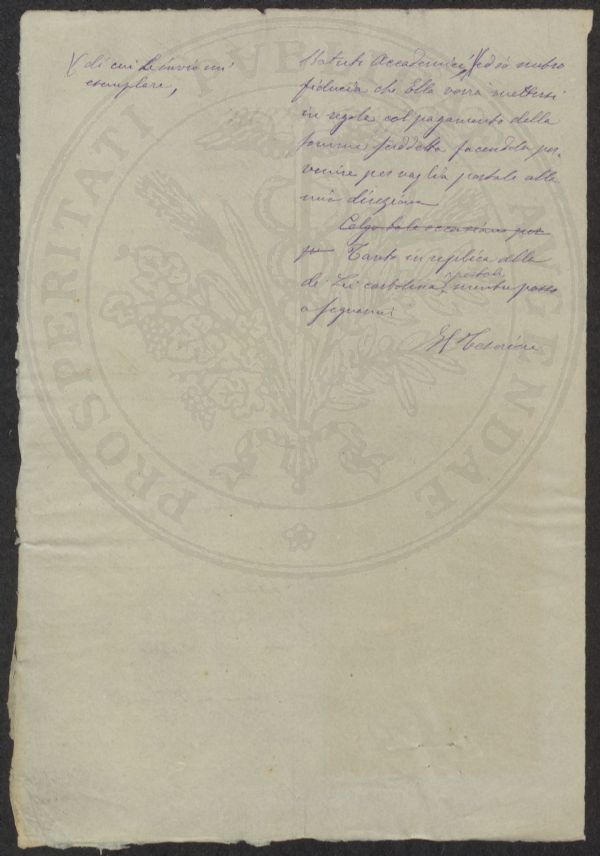 X di cui Le invio un
esemplare,
Statuti Accademici, X ed io nutro
fiducia che Ella vorrà mettersi
in regola col pagamento della
somma suddetta facendola per-
venire per vaglia postale alla
mia direzione
Colgo tale occasione per
Tanto in replica alla
di Lei cartolina postale, mentre passo
a segnarmi
Il Tesoriere
PROSPERITATI PVBLICAE AVGENDAE